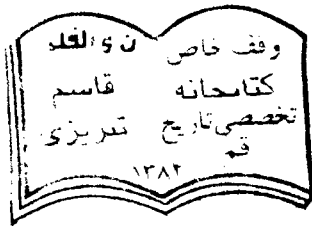 وقف خاص
کتابخانه
تخصصی تاریخ
قم
ن والقلم
قاسم
تبریزی
۱۳۸۲